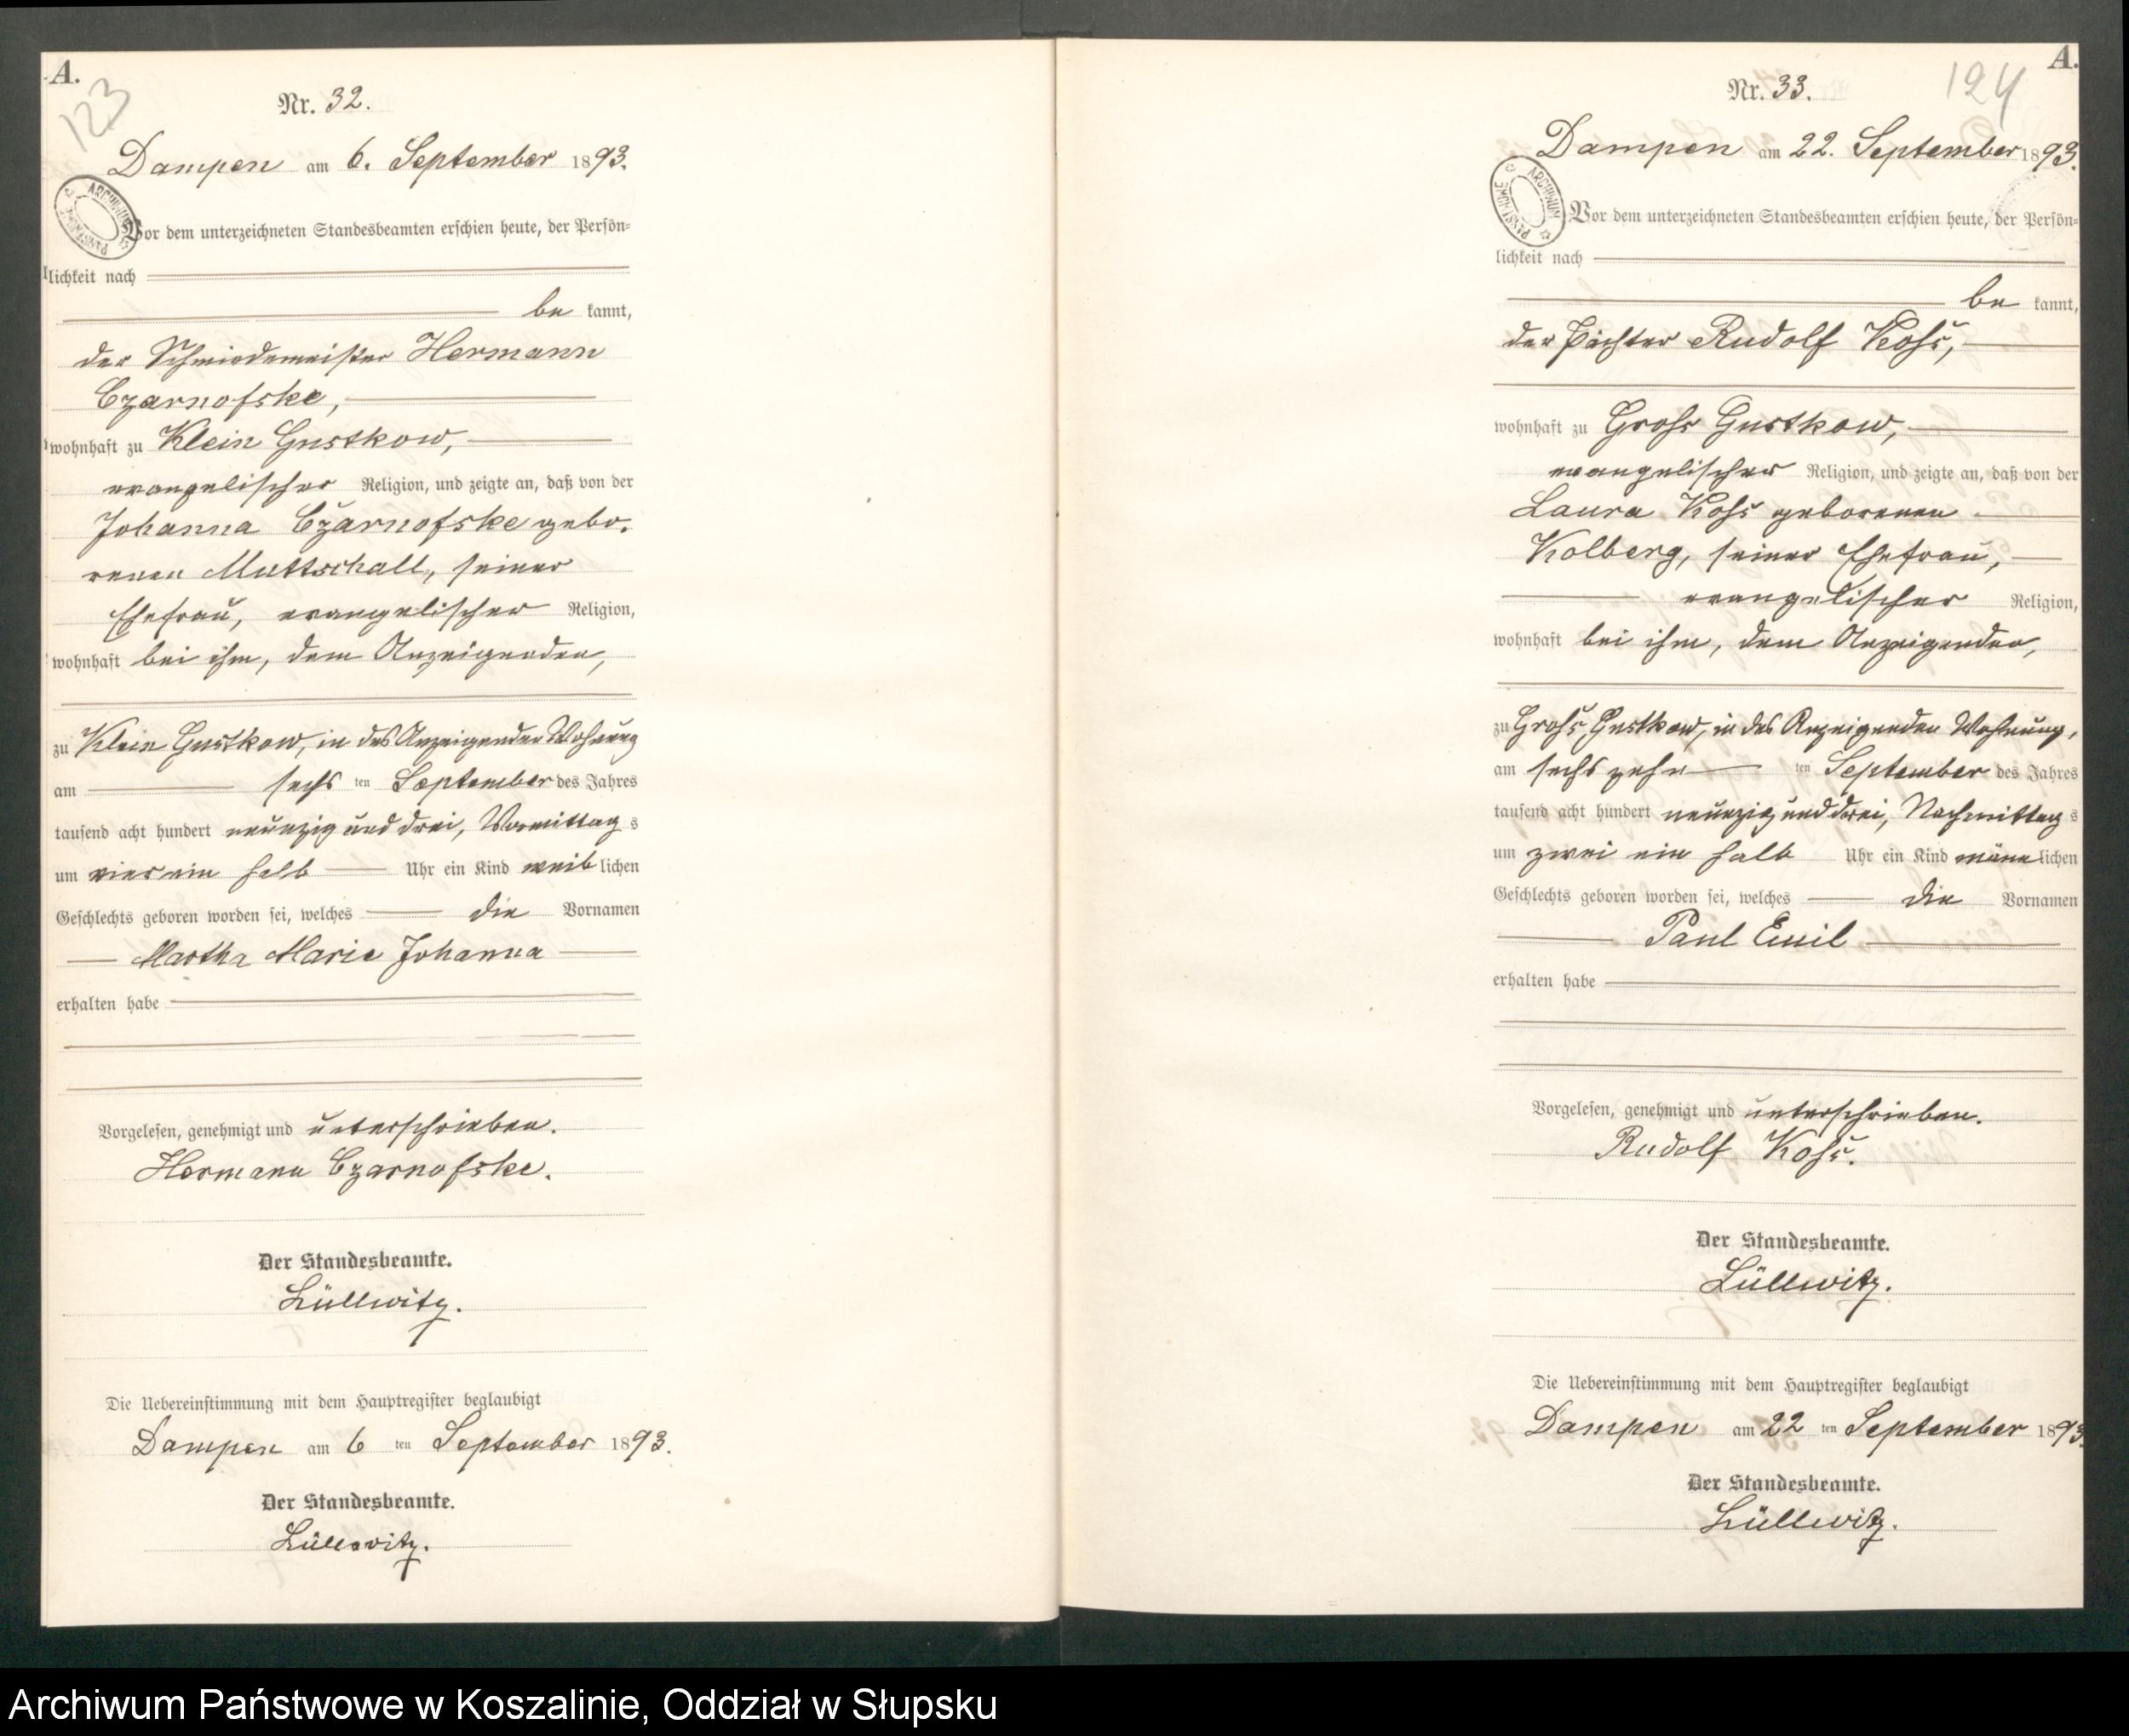 A.
123
Nr. 32.
Dampen am 6. September 1893.
ARCHIWUM PAŃSTWOWE
Vor dem unterzeichneten Standesbeamten erschien heute, der Persön=
lichkeit nach
be kannt,
der Schmiedemeister Hermann
Czarnofske,
wohnhaft zu Klein Gustkow,
evangelischer Religion, und zeigte an, daß von der
Johanna Czarnofske gebo.
renen Muttschall, seiner
Ehefrau, evangelischer Religion,
wohnhaft bei ihm, dem Anzeigenden,
zu Klein Gustkow, in des Anzeigenden Wohnung
am sechs ten September des Jahres
tausend acht hundert neunzig und drei, Vormittag s
um vier ein halb Uhr ein Kind weib lichen
Geschlechts geboren worden sei, welches die Vornamen
Martha Marie Johanna
erhalten habe
Vorgelesen, genehmigt und unterschrieben.
Hermann Czarnofske.
Der Standesbeamte.
Lüllwitz.
Die Uebereinstimmung mit dem Hauptregister beglaubigt
Dampen am 6 ten September 1893.
Der Standesbeamte.
Lüllwitz.
A.
124
Nr. 33.
Dampen am 22. September 1893.
ARCHIWUM PAŃSTWOWE
Vor dem unterzeichneten Standesbeamten erschien heute, der Persön=
lichkeit nach
be kannt,
der Pächter Rudolf Koß,
wohnhaft zu Groß Gustkow,
evangelischer Religion, und zeigte an, daß von der
Laura Koß geborenen
Kolberg, seiner Ehefrau,
evangelischer Religion,
wohnhaft bei ihm, dem Anzeigenden,
zu Groß Gustkow, in des Anzeigenden Wohnung,
am sechszehn ten September des Jahres
tausend acht hundert neunzig und drei, Nachmittag s
um zwei ein halb Uhr ein Kind männ lichen
Geschlechts geboren worden sei, welches die Vornamen
Paul Emil
erhalten habe
Vorgelesen, genehmigt und unterschrieben.
Rudolf Koß.
Der Standesbeamte.
Lüllwitz.
Die Uebereinstimmung mit dem Hauptregister beglaubigt
Dampen am 22 ten September 1893.
Der Standesbeamte.
Lüllwitz.
Archiwum Państwowe w Koszalinie, Oddział w Słupsku